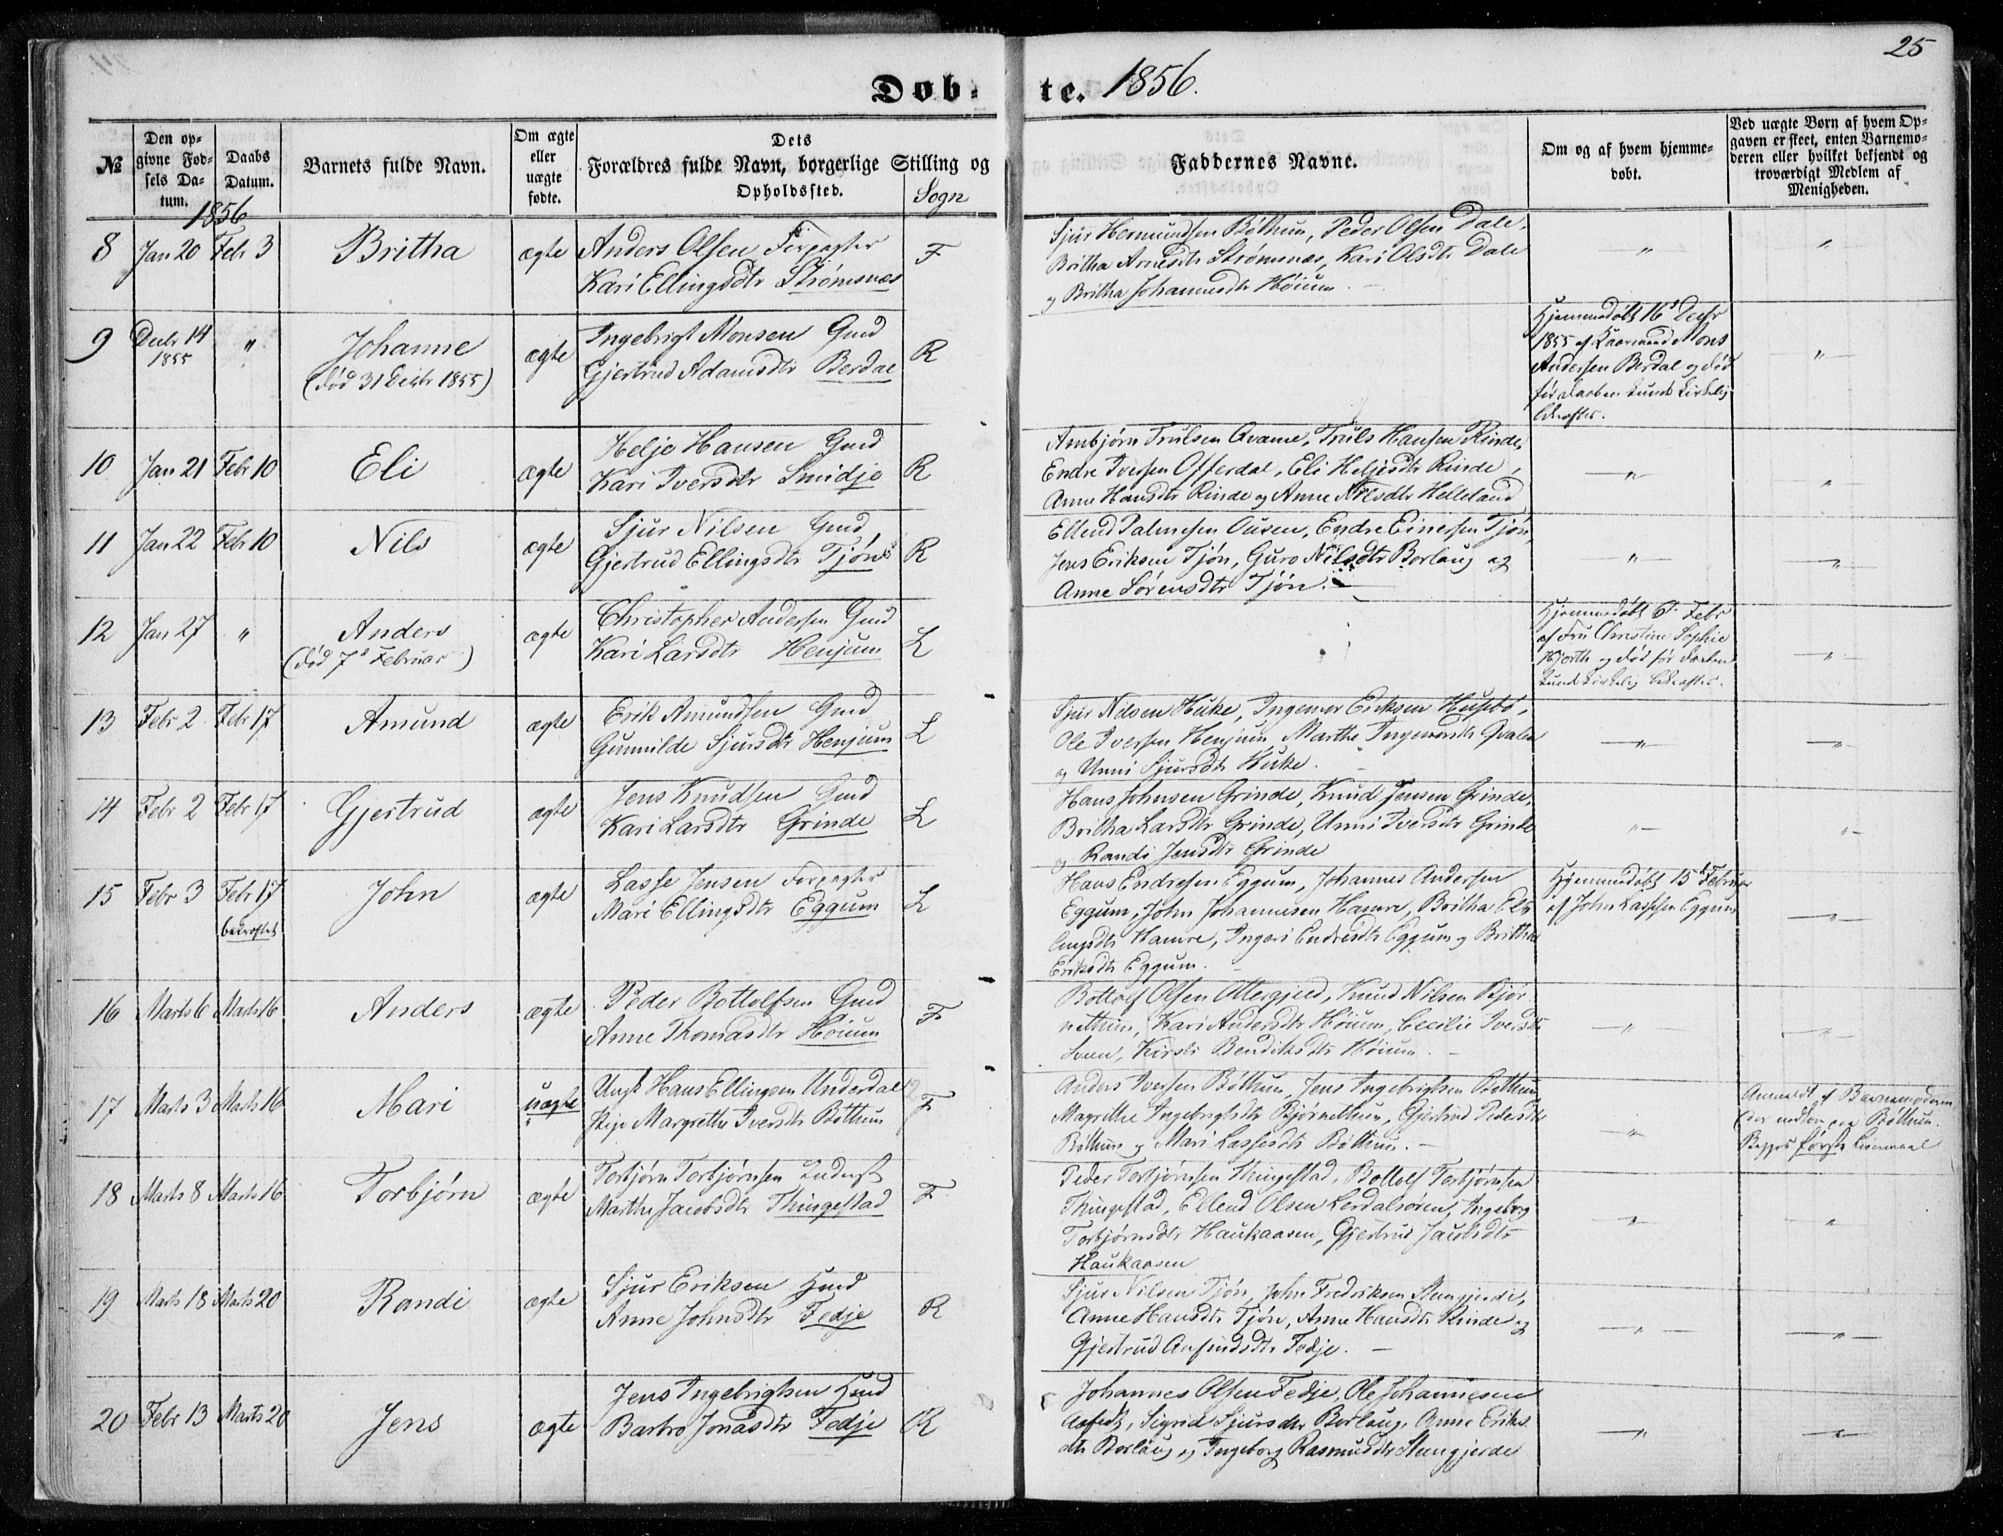 25
Døb- te. 1856.
№
Den opgivne Fødsels Datum.
Daabs Datum.
Barnets fulde Navn.
Om ægte eller uægte fødte.
Dets Forældres fulde Navn, borgerlige Stilling og Opholdssted.
Sogn
Faddernes Navne.
Om og af hvem hjemmedøbt.
Ved uægte Børn af hvem Opgaven er skeet, enten Barnemoderen eller hvilket bekjendt og troværdigt Medlem af Menigheden.
1856
8 Jan 20 Febr 3 Britha ægte Anders Olsen Forpagter
Kari Ellingsdtr Strømsnæs F
Sjur Hermundsen Bøthun, Peder Olsen Dale,
Britha Arnesdtr Strømsnæs, Kari Olsdtr Dale
og Britha Johannesdtr Høium. — " "
9 Decbr 14 1855 " Johanne
(død 31 Decbr 1855)
ægte Ingebrigt Monsen Gmd
Gjertrud Adamsdtr Berdal R
Hjemmedøbt 16d Decbr
1855 af Kaarmand Mons
Andersen Berdal og død
før Daaben kunde kirkelig
bekræftes. "
10 Jan 21 Febr 10 Eli ægte Helje Hansen Gmd
Kari Iversdtr Smidje R
Arnbjørn Trulsen Qvame, Truls Hansen Rinde,
Endre Iversen Offerdal, Eli Heljesdtr Rinde,
Anne Hansdtr Rinde og Anne Nilsdtr Helleland " "
11 Jan 22 Febr 10 Nils ægte Sjur Nilsen Gmd
Gjertrud Ellingsdtr Tjøn R
Ellend Palmesen Ousen, Endre Einersen Tjøn,
Jens Eriksen Tjøn, Guro Nilsdtr Borlaug og
Anne Sørensdtr Tjøn. — " "
12 Jan 27 " Anders
(død 7d Februar)
ægte Christopher Andersen Gmd
Kari Larsdtr Henjum L
Hjemmedøbt 6d Febr
af Fru Christine Sophie
Hjorth og død før Daaben
kunde kirkelig bekræftes. "
13 Febr 2 Febr 17 Amund ægte Erik Amundsen Gmd
Gunnilde Sjursdtr Henjum L
Sjur Nilsen Huke, Ingemar Eriksen Husebø,
Ole Iversen Henjum, Marthe Ingemarsdtr Qvalen
og Unni Sjursdtr Huke. " "
14 Febr 2 Febr 17 Gjertrud ægte Jens Knudsen Gmd
Kari Larsdtr Grinde L
Hans Johnsen Grinde, Knud Jensen Grinde,
Britha Larsdtr Grinde, Unni Iversdtr Grinde
og Randi Jensdtr Grinde " "
15 Febr 3 Febr 17
bekræftet
John ægte Lasse Jensen Forpagter
Mari Ellingsdtr Eggum L
Hans Endresen Eggum, Johannes Andersen
Eggum, John Johannesen Hamre, Britha Ell-
ingsdtr Hamre, Ingeri Endresdtr Eggum og Britha
Eriksdtr Eggum. —
Hjemmedøbt 15d Februar
af John Lassesen Eggum "
16 Marts 6 Marts 16 Anders ægte Peder Bottolfsen Gmd
Anne Thomasdtr Høium F
Bottolf Olsen Ottergjeed, Knud Nilsen Bjør-
nethun, Kari Andersdtr Høium, Cecilie Iversdtr
Loen, Kirsti Bendiksdtr Høium. — " "
17 Marts 3 Marts 16 Mari uægte Ungk Hans Ellingsen Underdal
Pige Margrethe Iversdtr Bøthun F
Anders Iversen Bøthun, Jens Ingebrigtsen Bøthun
Magrethe Ingebrigtsdtr Bjørnethun, Gjertrud Pedersdtr
Bøthun og Mari Lassesdtr Bøthun. — "
Anmeldt af Barnemoderen
Bøthun.
Begges første Leiermaal
18 Marts 8 Marts 16 Torbjørn ægte Torbjørn Torbjørnsen Inderst
Marthe Jacobsdtr Thingestad F
Peder Torbjørnsen Thingestad, Bottolf Torbjørnsen
Thingestad, Ellend Olsen Lerdalsøren, Ingeborg
Torbjørnsdtr Haukaasen, Gjertrud Jacobsdtr
Haukaasen " "
19 Marts 18 Marts 20 Randi ægte Sjur Eriksen Hmd
Anne Johnsdtr Fedje R
Sjur Nilsen Tjøn, John Fredriksen Stengjerde,
Anne Hansdtr Tjøn, Anne Hansdtr Rinde og
Gjertrud Anfindsdtr Fedje. — " "
20 Febr 13 Marts 20 Jens ægte Jens Ingebrigtsen Hmd
Barbro Jonasdtr Fedje R
Johannes Olsen Fedje, Ole Johannesen
Aafedt, Sigrid Sjursdtr Borlaug, Anne Eriks-
dtr Borlaug og Ingeborg Rasmusdtr Stengjerde " "